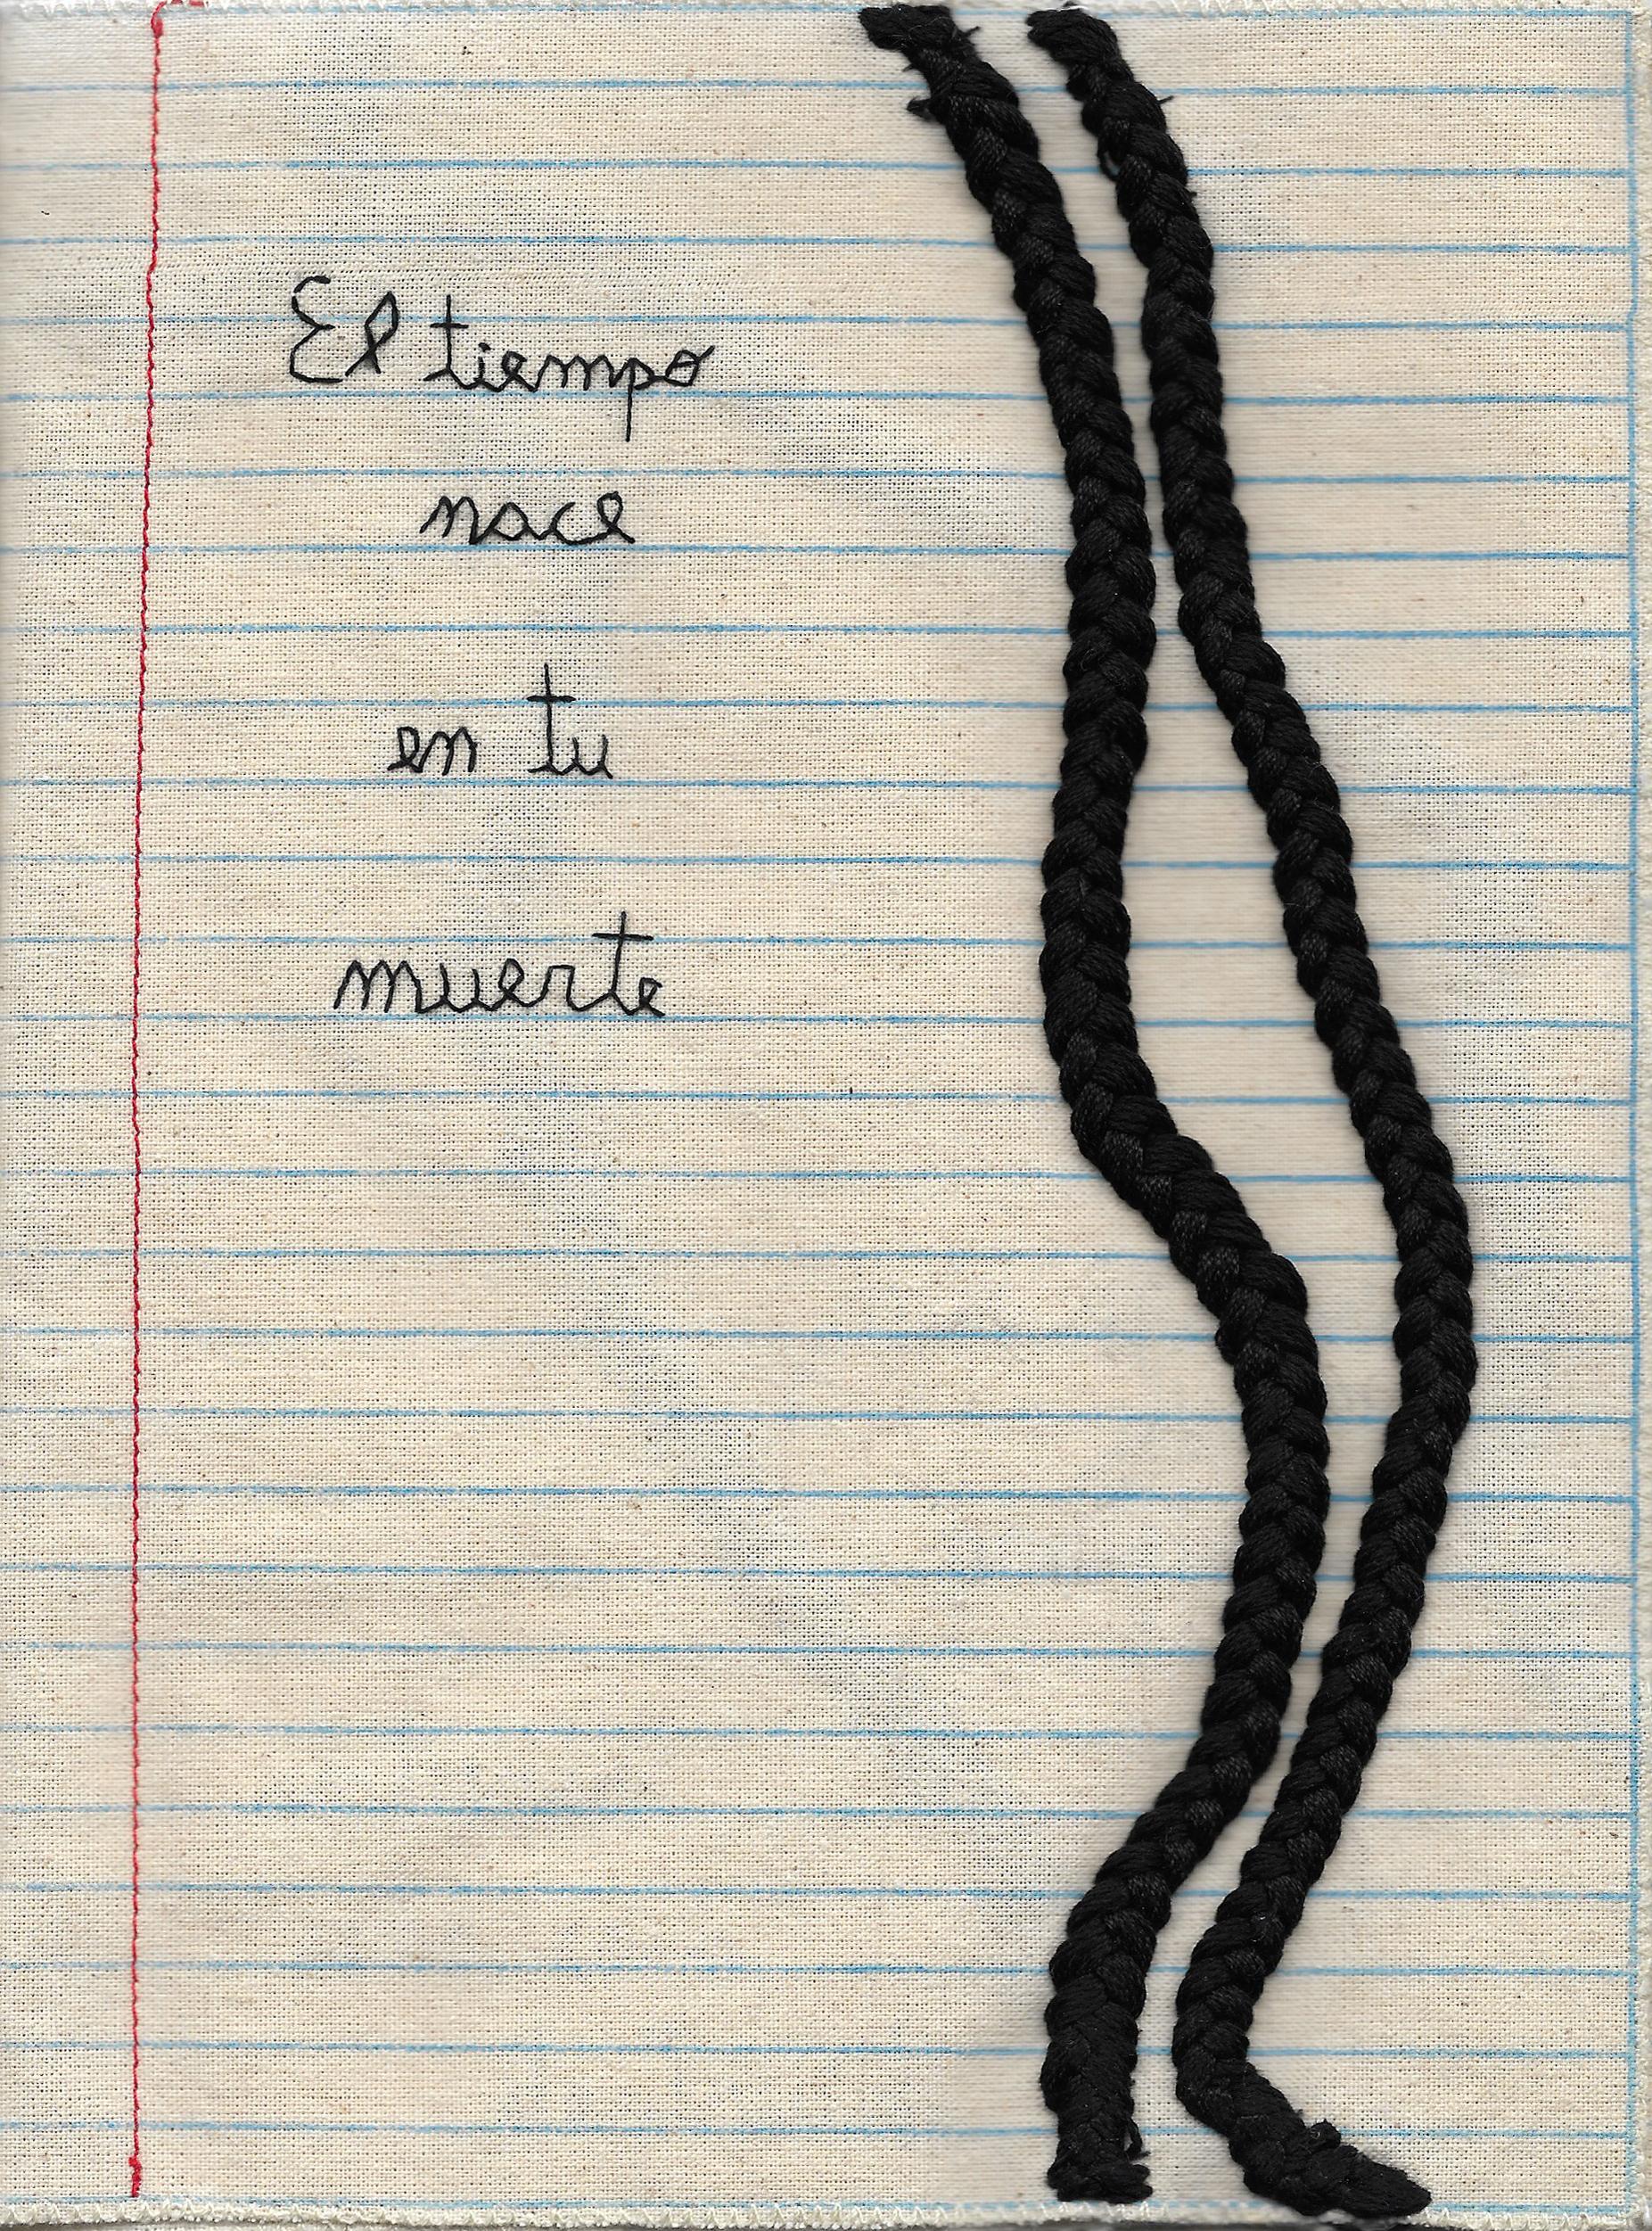 El tiempo
nace
en tu
muerte